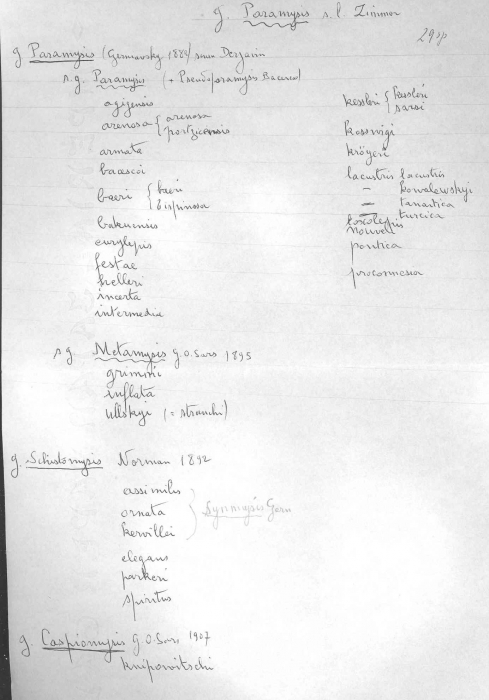 g. Paramysis s.l. Zimmer
29 sp
g Paramysis (Czerniavsky 1882) sensu Derjavin
s.g. Paramysis (+ Pseudoparamysis Bacescu)
agigensis
arenosa { arenosa
portzicensis
armata
bacescoi
baeri { baeri
bispinosa
bakuensis
eurylepis
festae
helleri
incerta
intermedia
kessleri { kessleri
sarsi
kosswigi
kröyeri
lacustris lacustris
— kowalewskyi
— tanaitica
— turcica
loxolepis
nouveli
pontica
proconnesia
s g. Metamysis G.O. Sars 1895
grimmi
inflata
ullskyi (= strauchi)
g. Schistomysis Norman 1892
assimilis
ornata } Synmysis Czern
kervillei
elegans
parkeri
spiritus
g Caspiomysis G.O. Sars 1907
knipowitschi